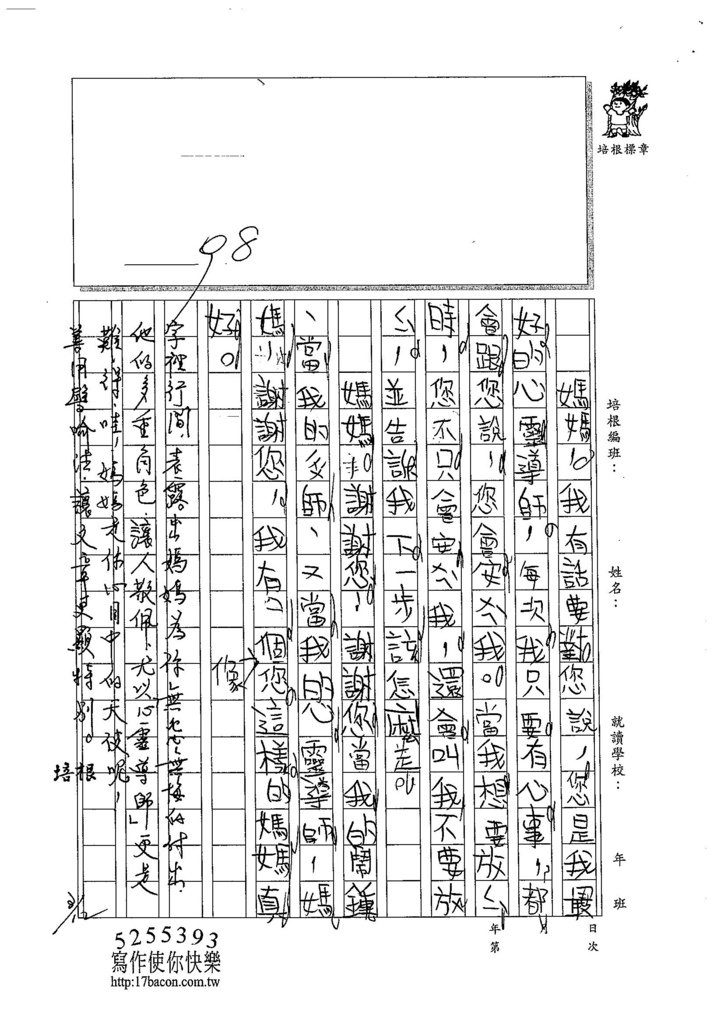 98
培根標章
培根編班：　姓名：　就讀學校：　年　班
年　月　日
第　次
媽媽！我有話要對您說，您是我最
好的心靈導師，每次我只要有心事，都
會跟您說，您會安公我。當我想要放公
時，您不只會安公我，還會叫我不要放
公，並告訴我下一步該怎麼走。
媽媽！謝謝您！謝謝您當我的鬧鐘
、當我的老師、又當我的心靈導師，媽
媽，謝謝您！我有個像您這樣的媽媽真
好。
字裡行間，表露出媽媽為你無怨無悔的付出
他的多重角色，讓人敬佩，尤以「心靈導師」更是
難得哇，媽媽是你心目中的天使呢，
善用譬喻法，讓文章更顯特別。
培根
5255393
寫作使你快樂
http:17bacon.com.tw